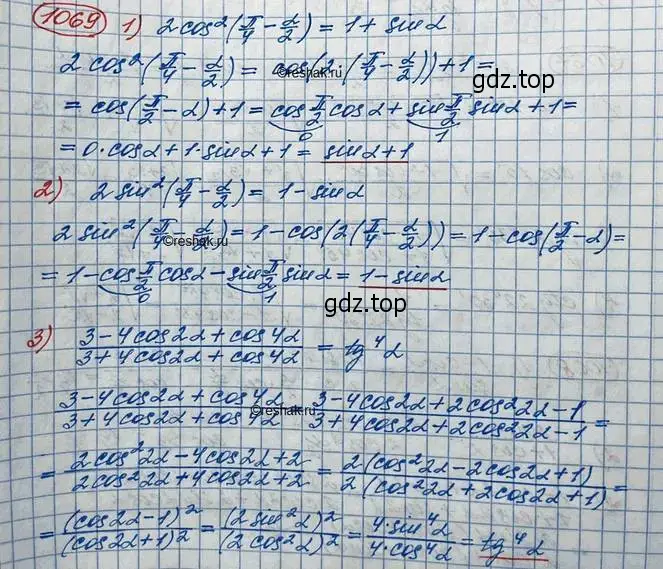 1069 1) 2cos²(π/4 − α/2) = 1 + sinα
2cos²(π/4 − α/2) = cos(2·(π/4 − α/2)) + 1 =
= cos(π/2 − α) + 1 = cos π/2 cosα + sin π/2 sinα + 1 =
0 1
= 0·cosα + 1·sinα + 1 = sinα + 1
2) 2sin²(π/4 − α/2) = 1 − sinα
2sin²(π/4 − α/2) = 1 − cos(2(π/4 − α/2)) = 1 − cos(π/2 − α) =
= 1 − cos π/2 cosα − sin π/2 sinα = 1 − sinα
0 1
3) (3 − 4cos2α + cos4α)/(3 + 4cos2α + cos4α) = tg⁴α
(3 − 4cos2α + cos4α)/(3 + 4cos2α + cos4α) (3 − 4cos2α + 2cos²2α − 1)/(3 + 4cos2α + 2cos²2α − 1) =
= (2cos²2α − 4cos2α + 2)/(2cos²2α + 4cos2α + 2) = 2(cos²2α − 2cos2α + 1)/2(cos²2α + 2cos2α + 1) =
= (cos2α − 1)²/(cos2α + 1)² = (2sin²α)²/(2cos²α)² = 4·sin⁴α/4·cos⁴α = tg⁴α
gdz.top
gdz.top
©reshak.ru
©reshak.ru
©reshak.ru